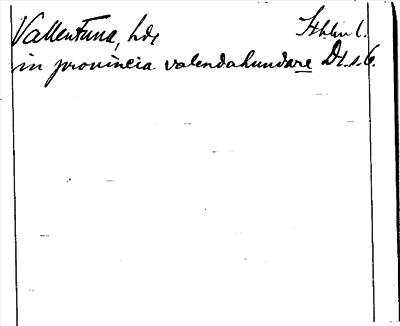 Vallentuna, hde Sthlm l.
in provincia valendahundare D1.s.6.